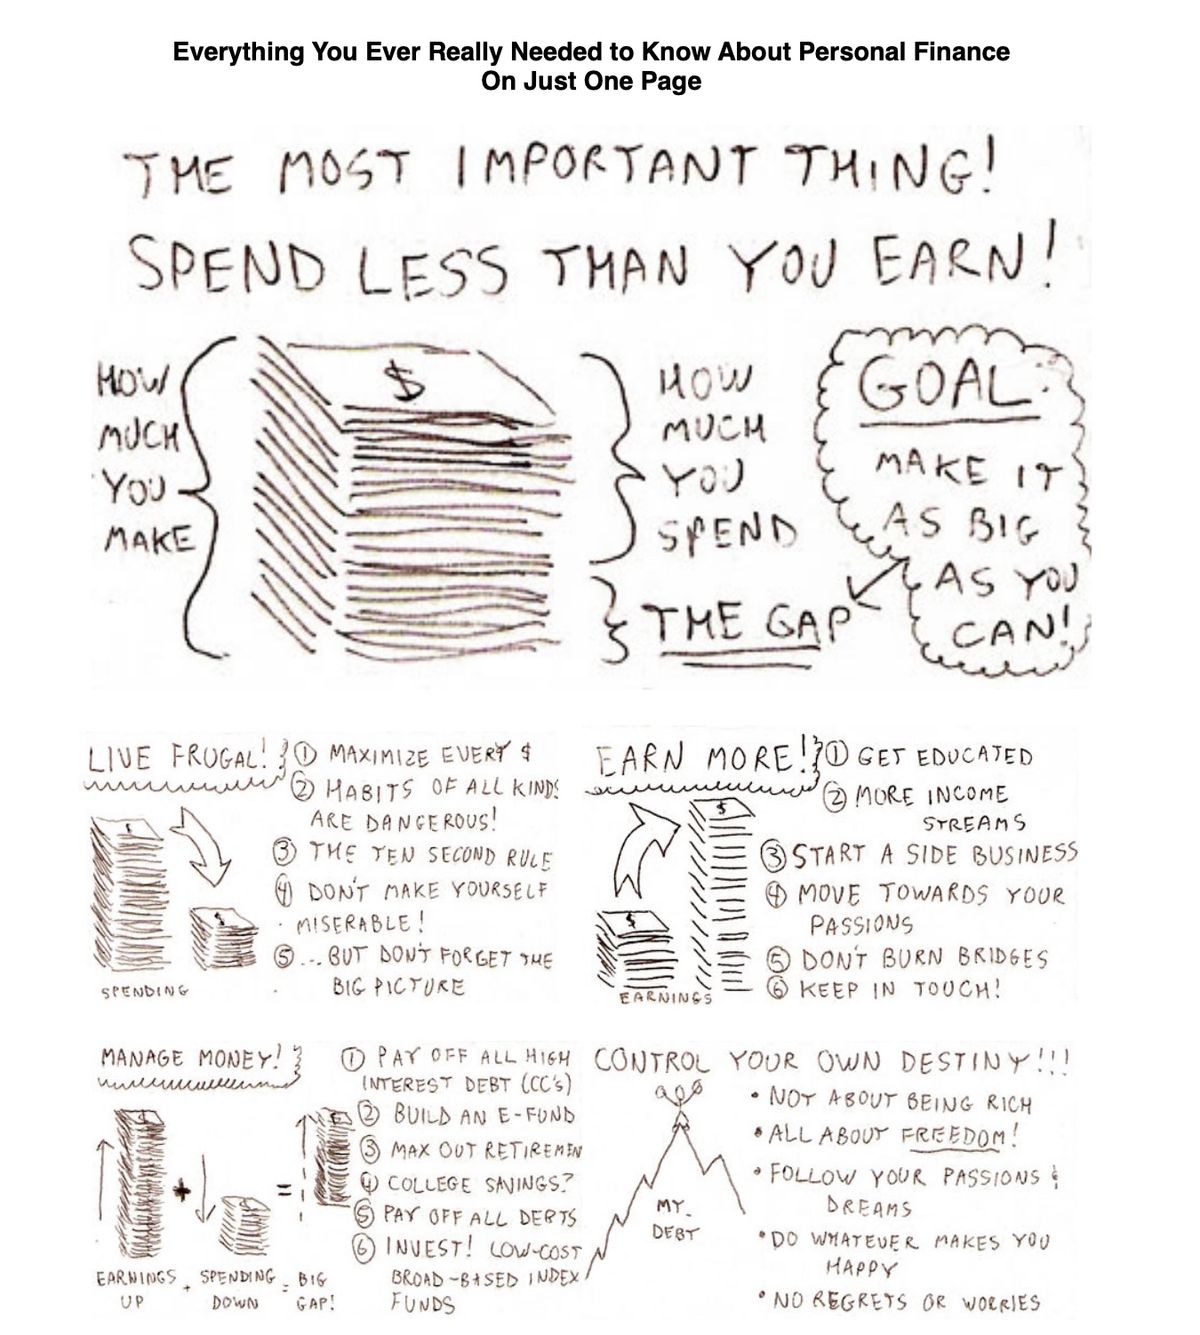 Everything You Ever Really Needed to Know About Personal Finance
On Just One Page
THE MOST IMPORTANT THING!
SPEND LESS THAN YOU EARN!
HOW
MUCH
YOU
MAKE
$
HOW
MUCH
YOU
SPEND
THE GAP
GOAL:
MAKE IT
AS BIG
AS YOU
CAN!
LIVE FRUGAL!
① MAXIMIZE EVERY $
② HABITS OF ALL KINDS
ARE DANGEROUS!
③ THE TEN SECOND RULE
④ DON'T MAKE YOURSELF
MISERABLE!
⑤ ...BUT DON'T FORGET THE
BIG PICTURE
$
$
SPENDING
EARN MORE!
① GET EDUCATED
② MORE INCOME
STREAMS
③ START A SIDE BUSINESS
④ MOVE TOWARDS YOUR
PASSIONS
⑤ DON'T BURN BRIDGES
⑥ KEEP IN TOUCH!
$
$
EARNINGS
MANAGE MONEY!
① PAY OFF ALL HIGH
INTEREST DEBT (CC'S)
② BUILD AN E-FUND
③ MAX OUT RETIREMEN
④ COLLEGE SAVINGS?
⑤ PAY OFF ALL DEBTS
⑥ INVEST! LOW-COST
BROAD-BASED INDEX
FUNDS
+ =
EARNINGS + SPENDING = BIG
UP DOWN GAP!
CONTROL YOUR OWN DESTINY!!!
• NOT ABOUT BEING RICH
• ALL ABOUT FREEDOM!
• FOLLOW YOUR PASSIONS &
DREAMS
• DO WHATEVER MAKES YOU
HAPPY
• NO REGRETS OR WORRIES
MY
DEBT